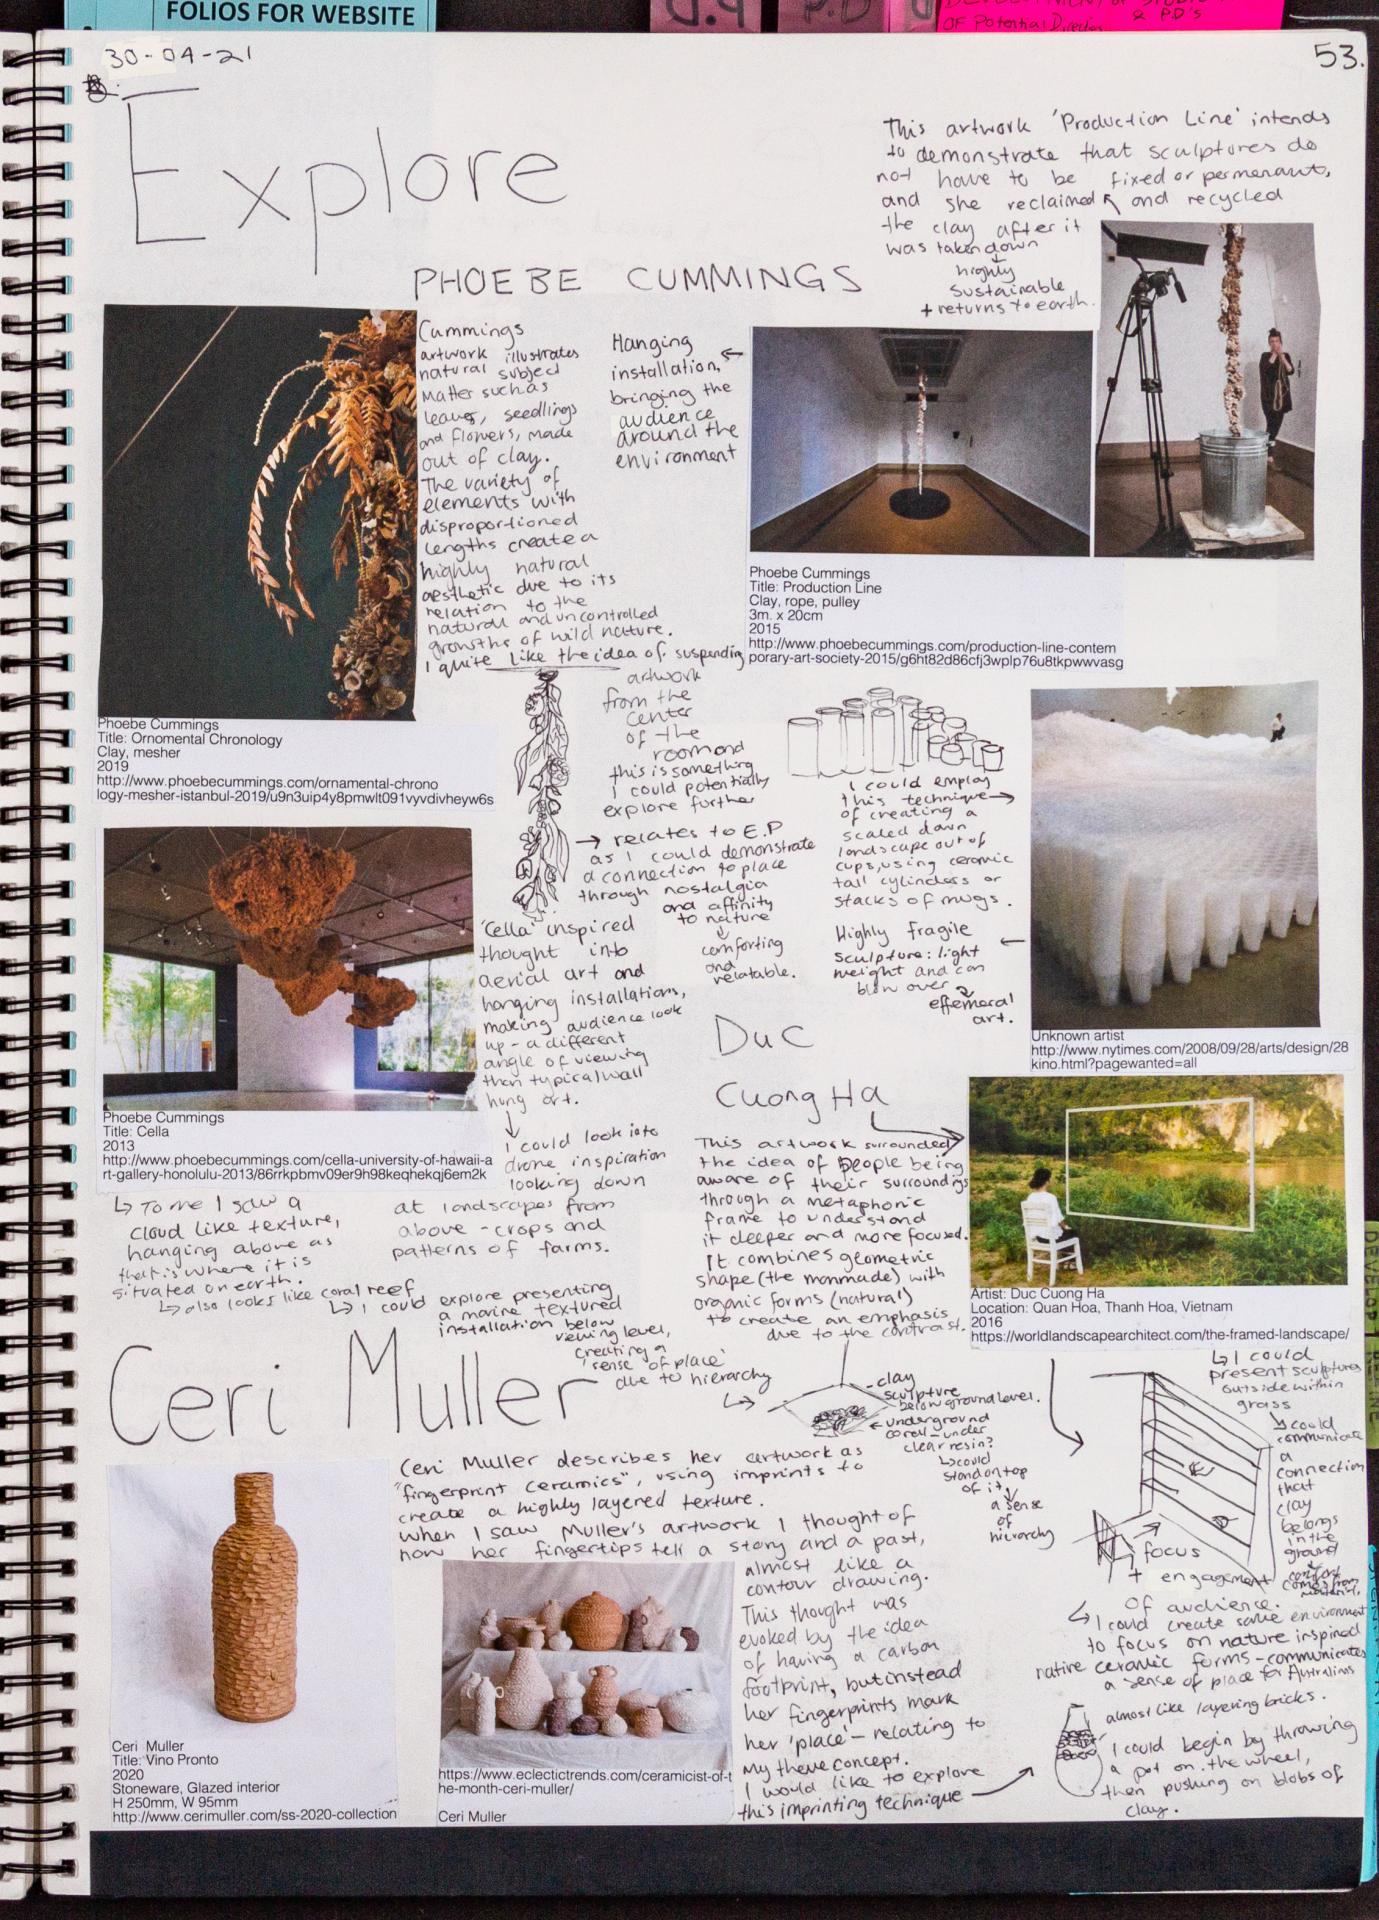 FOLIOS FOR WEBSITE
P.D
P.D
OF Potential Direction
& P.D's
30-04-21
53.
Explore
This artwork 'Production Line' intends
to demonstrate that sculptures do
not have to be fixed or permenant,
and she reclaimed and recycled
the clay after it
was taken down
highly
sustainable
+ returns to earth.
PHOEBE CUMMINGS
Cummings
artwork illustrates
natural subject
matter such as
leaves, seedlings
and flowers, made
out of clay.
The variety of
elements with
disproportioned
lengths create a
highly natural
aesthetic due to its
relation to the
natural and uncontrolled
growths of wild nature.
I quite like the idea of suspending
artwork
from the
center
of the
room and
this is something
I could potentially
explore further
→ relates to E.P
as I could demonstrate
a connection to place
through nostalgia
and affinity
to nature
↓
comforting
and
relatable.
Hanging
installation,
bringing the
audience
around the
environment
Phoebe Cummings
Title: Production Line
Clay, rope, pulley
3m. x 20cm
2015
http://www.phoebecummings.com/production-line-contem
porary-art-society-2015/g6ht82d86cfj3wplp76u8tkpwwvasg
Phoebe Cummings
Title: Ornomental Chronology
Clay, mesher
2019
http://www.phoebecummings.com/ornamental-chrono
logy-mesher-istanbul-2019/u9n3uip4y8pmwlt091vyvdivheyw6s
I could employ
this technique →
of creating a
scaled down
landscape out of
cups, using ceramic
tall cylinders or
stacks of mugs.
Highly fragile
sculpture: light
weight and can
blow over
effemeral
art.
Unknown artist
http://www.nytimes.com/2008/09/28/arts/design/28
kino.html?pagewanted=all
'Cella' inspired
thought into
aerial art and
hanging installations,
making audience look
up - a different
angle of viewing
than typical wall
hung art.
↓
I could look into
drone inspiration
looking down
at landscapes from
above - crops and
patterns of farms.
Phoebe Cummings
Title: Cella
2013
http://www.phoebecummings.com/cella-university-of-hawaii-a
rt-gallery-honolulu-2013/86rrkpbmv09er9h98keqhekqj6em2k
↳ To me I saw a
cloud like texture,
hanging above as
that is where it is
situated on earth.
↳ also looks like coral reef
↳ I could explore presenting
a marine textured
installation below
viewing level,
creating a
'sense of place'
due to hierarchy
Duc
Cuong Ha
This artwork surrounded
the idea of people being
aware of their surroundings
through a metaphoric
frame to understand
it deeper and more focused.
It combines geometric
shape (the manmade) with
organic forms (natural)
to create an emphasis
due to the contrast.
Artist: Duc Cuong Ha
Location: Quan Hoa, Thanh Hoa, Vietnam
2016
https://worldlandscapearchitect.com/the-framed-landscape/
↳ I could
present sculptures
outside within
grass
↳ could
communicate
a
connection
that
clay
belongs
in the
ground
comes from
clay
sculpture
below ground level.
underground
corell - under
clear resin?
↳ could
stand on top
of it
a sense
of
hierarchy
focus
+ engagement
of audience.
↳ I could create same environment
to focus on nature inspired
native ceramic forms - communicates
a sense of place for Australians
Ceri Muller
Ceri Muller describes her artwork as
"fingerprint ceramics", using imprints to
create a highly layered texture.
When I saw Muller's artwork I thought of
how her fingertips tell a story and a past,
almost like a
contour drawing.
This thought was
evoked by the idea
of having a carbon
footprint, but instead
her fingerprints mark
her 'place' - relating to
my theme concept.
I would like to explore
this imprinting technique
almost like layering bricks.
I could begin by throwing
a pot on the wheel,
then pushing on blobs of
clay.
Ceri Muller
Title: Vino Pronto
2020
Stoneware, Glazed interior
H 250mm, W 95mm
http://www.cerimuller.com/ss-2020-collection
https://www.eclectictrends.com/ceramicist-of-t
he-month-ceri-muller/
Ceri Muller